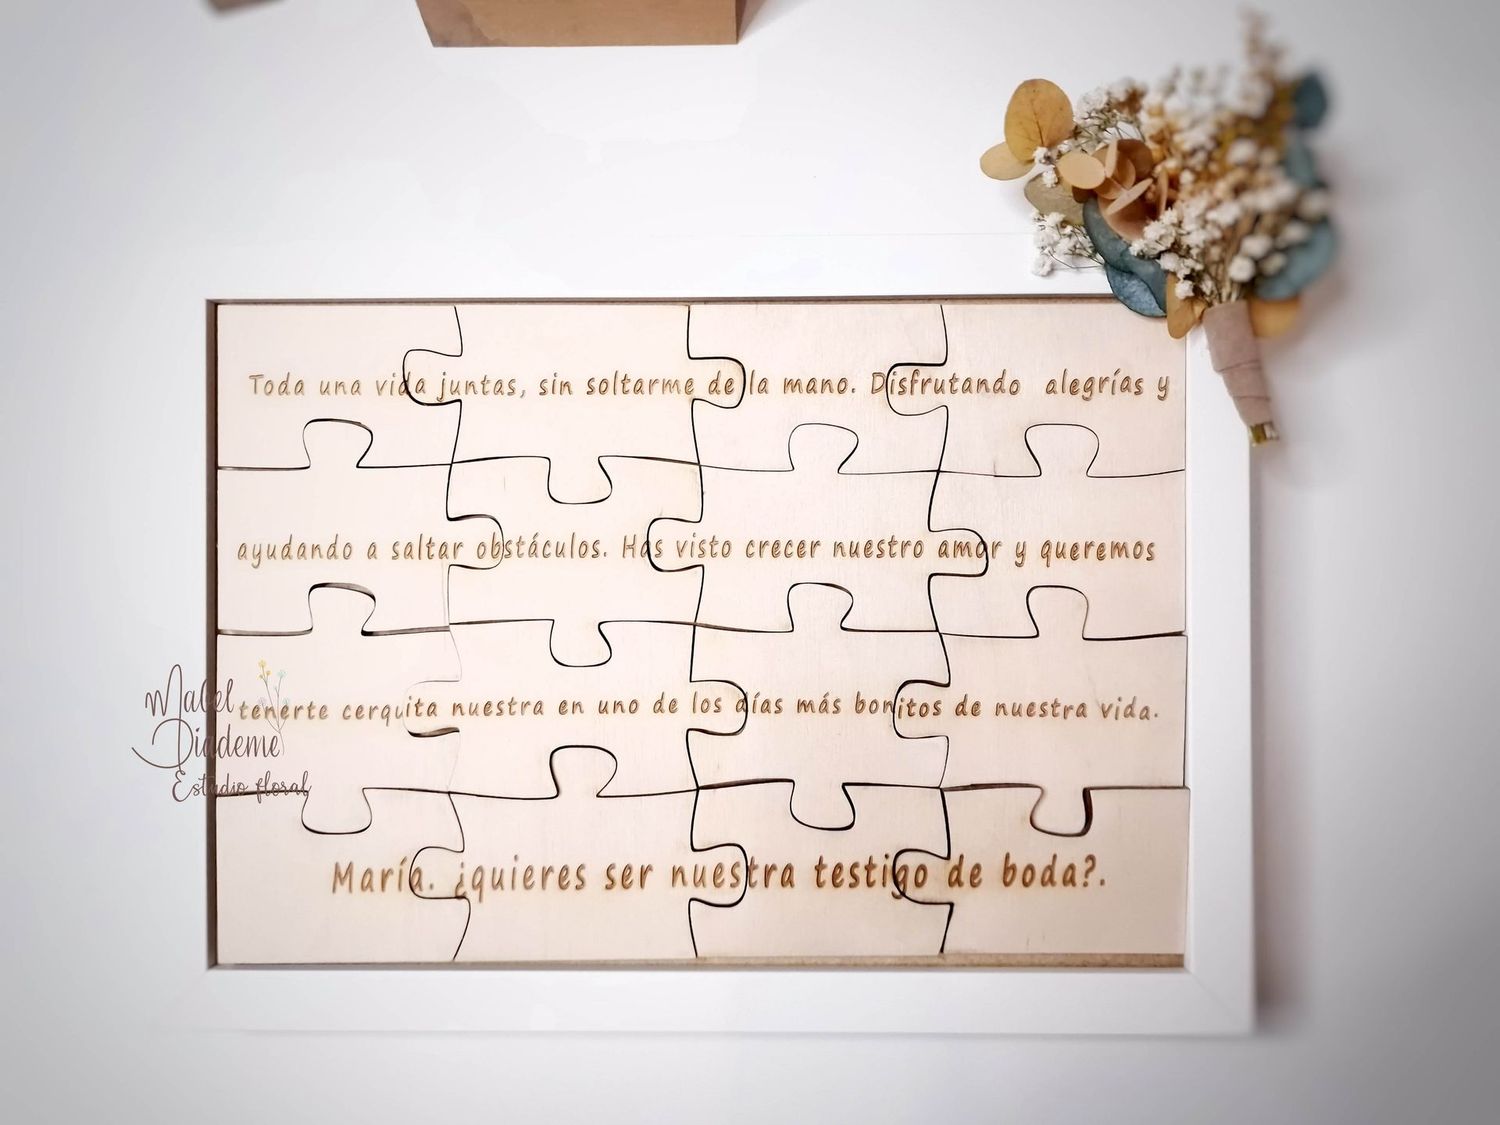 Toda una vida juntas, sin soltarme de la mano. Disfrutando alegrías y
ayudando a saltar obstáculos. Has visto crecer nuestro amor y queremos
tenerte cerquita nuestra en uno de los días más bonitos de nuestra vida.
María. ¿quieres ser nuestra testigo de boda?.
Mabel
Diademe
Estudio floral